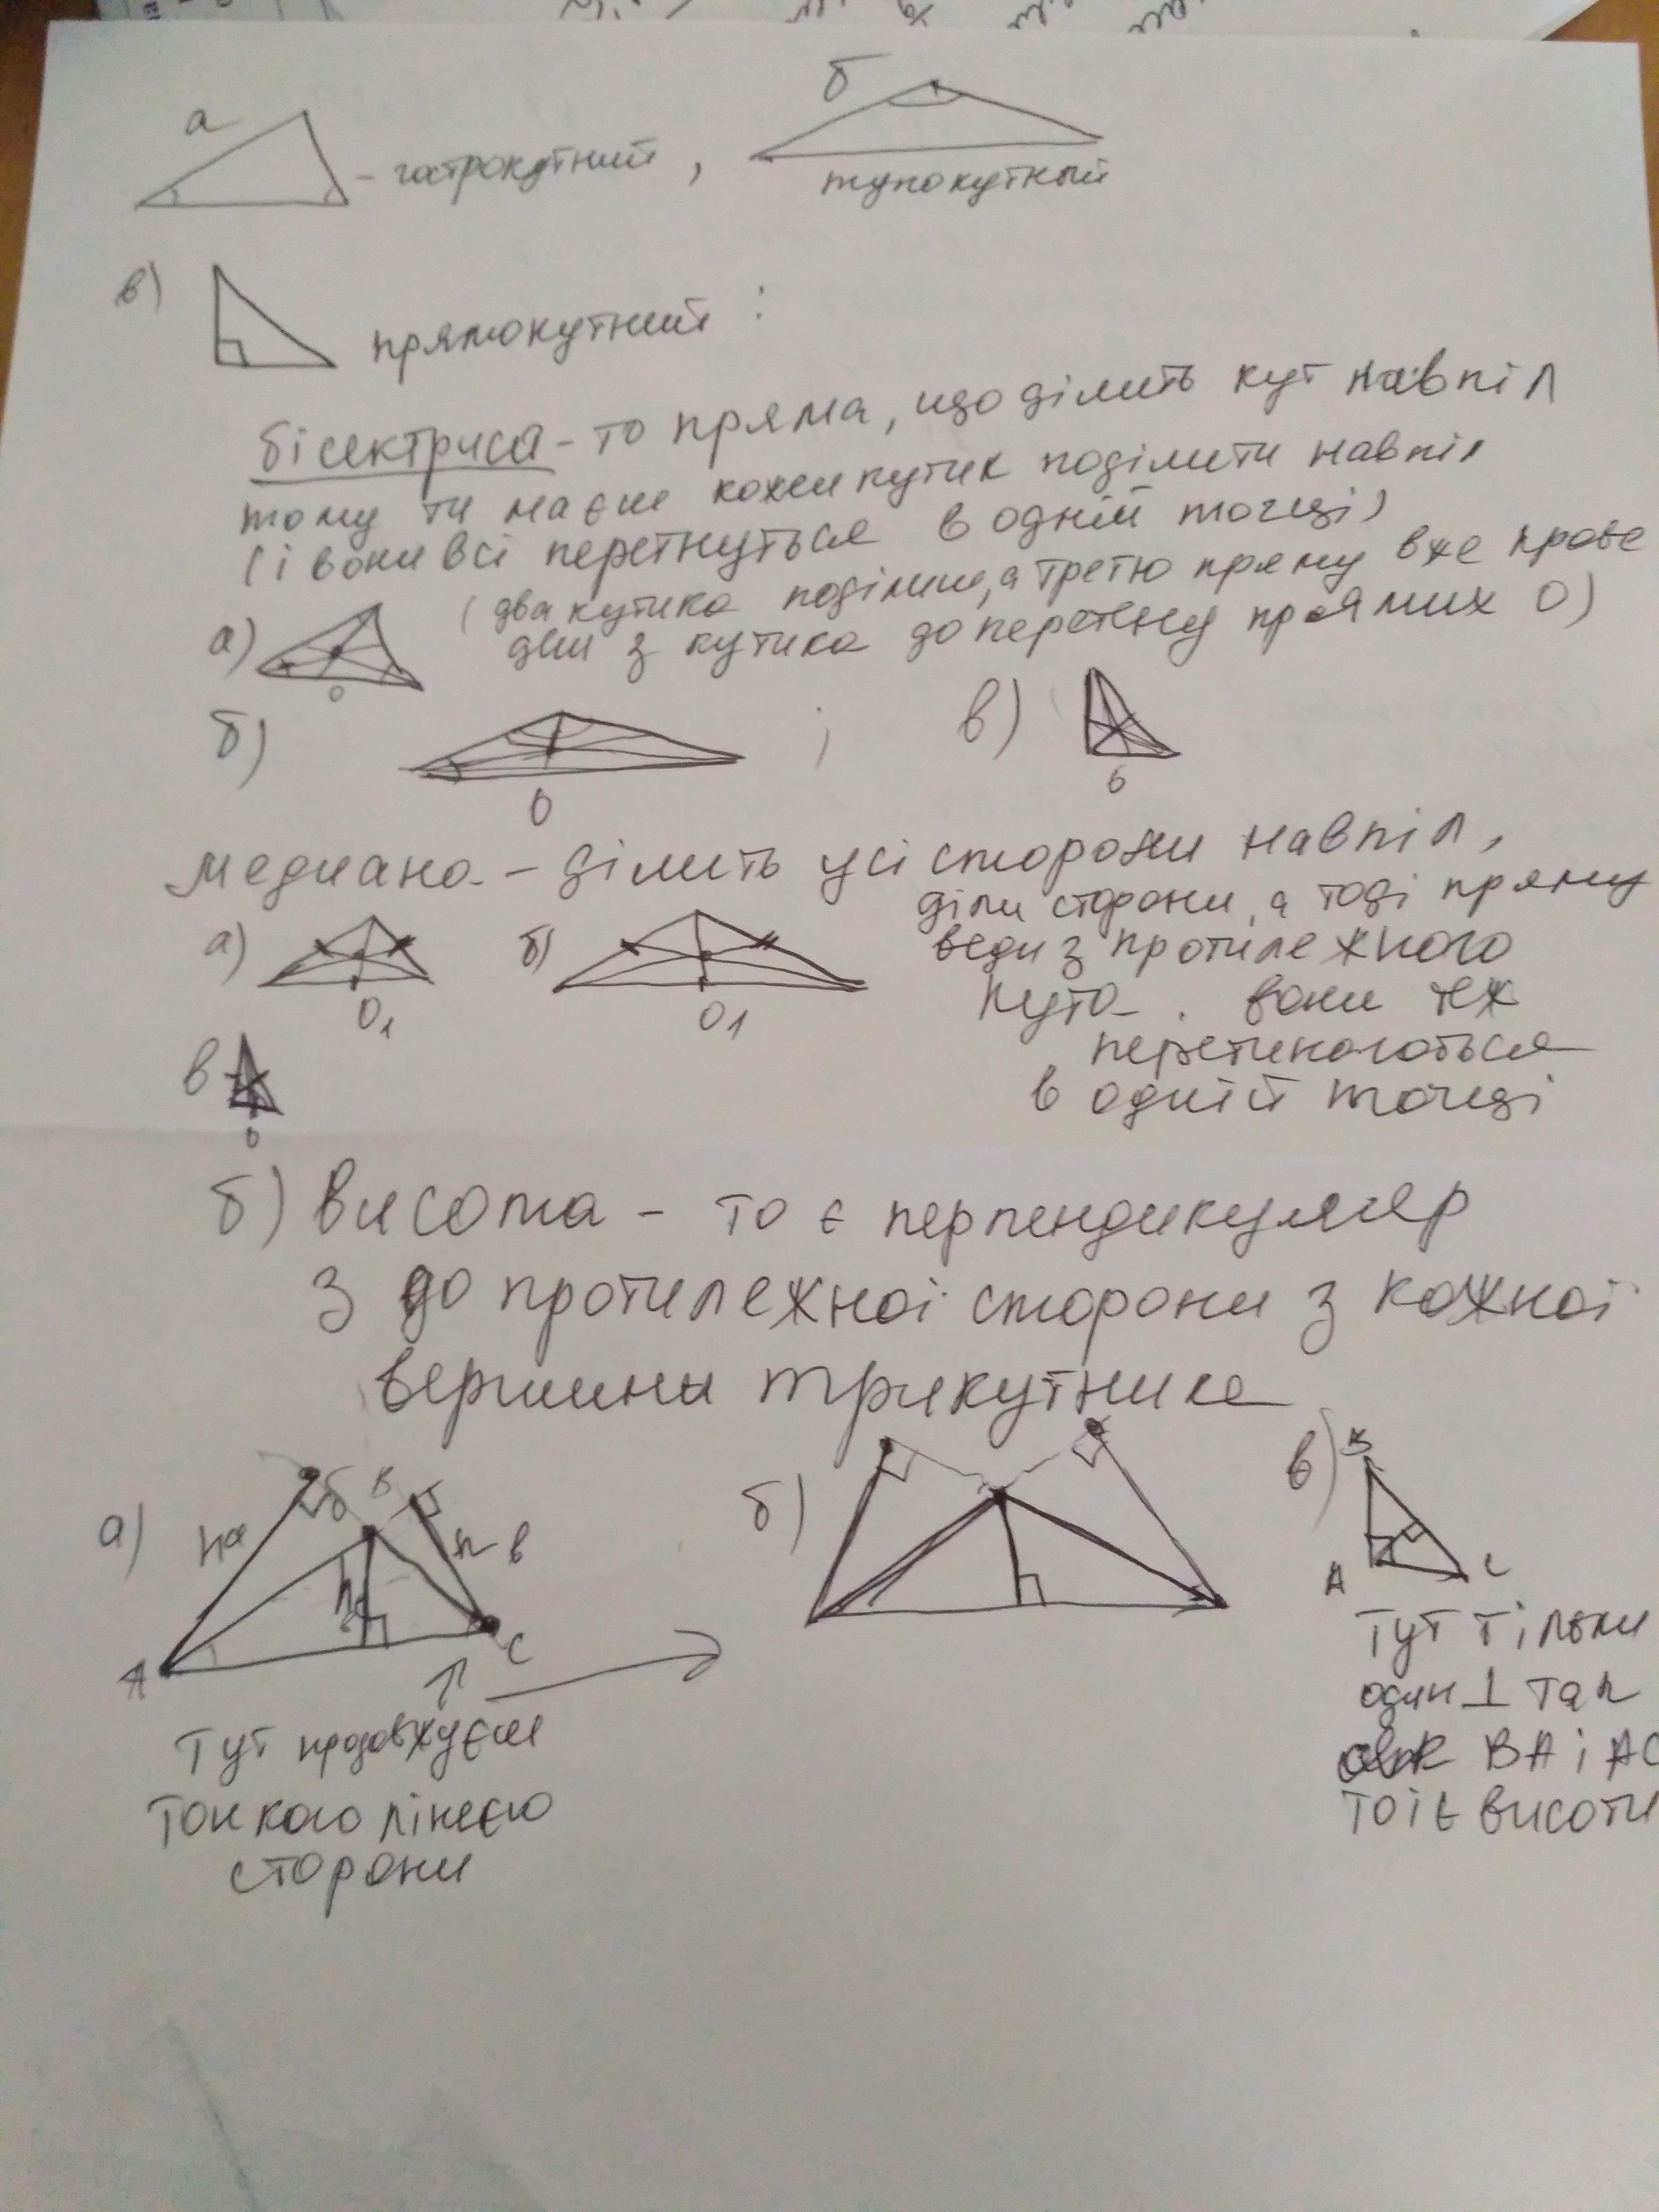 а
- гострокутний ,
б
тупокутный
в)
прямокутний :
бісектриса - то пряма, що ділить кут навпіл
тому ти маєш кожен кутик поділити навпіл
(і вони всі перетнуться в одній точці)
(два кутика поділиш, а третю пряму вже прове
деш з кутика до перетину прямих О)
а)
О
б)
О
;
в)
О
медиана - ділить усі сторони навпіл,
діли сторони, а тоді пряму
веди з протилежного
кута. вони теж
перетинаються
в одній точці
а)
О1
б)
О1
в
О
б) Висота - то є перпендикуляр
з до протилежної сторони з кожної
вершины трикутника
а)
hа
б
В
h в
h
А
С
Тут продовжуєш
тонкою лінєю
сторони
б)
в)
В
А
С
Тут тільки
один ⊥ так
як ВА і АС
то і є висоти